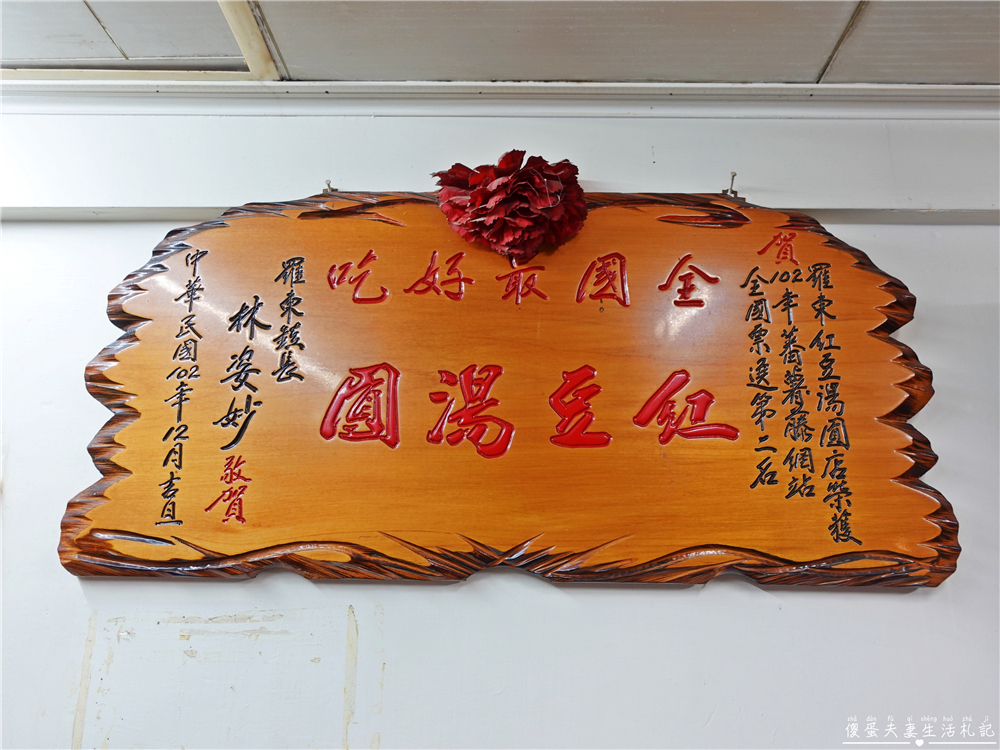 賀
羅東紅豆湯圓店榮獲
102年蕃薯藤網站
全國票選第二名
全國最好吃
紅豆湯圓
羅東鎮長
林姿妙
敬賀
中華民國102年12月吉旦
shǎ dàn fū qī shēng huó zhá jì
傻蛋夫妻生活札記